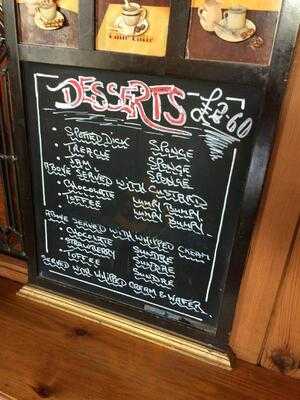 DESSERTS £2.60
• SPOTTED DICK SPONGE
• TREACLE SPONGE
• JAM SPONGE
ABOVE SERVED WITH CUSTARD
• CHOCOLATE LUMPY BUMPY
• TOFFEE LUMPY BUMPY
ABOVE SERVED WITH WHIPPED CREAM
• CHOCOLATE SUNDAE
• STRAWBERRY SUNDAE
TOFFEE SUNDAE
SERVED WITH WHIPPED CREAM & WAFER